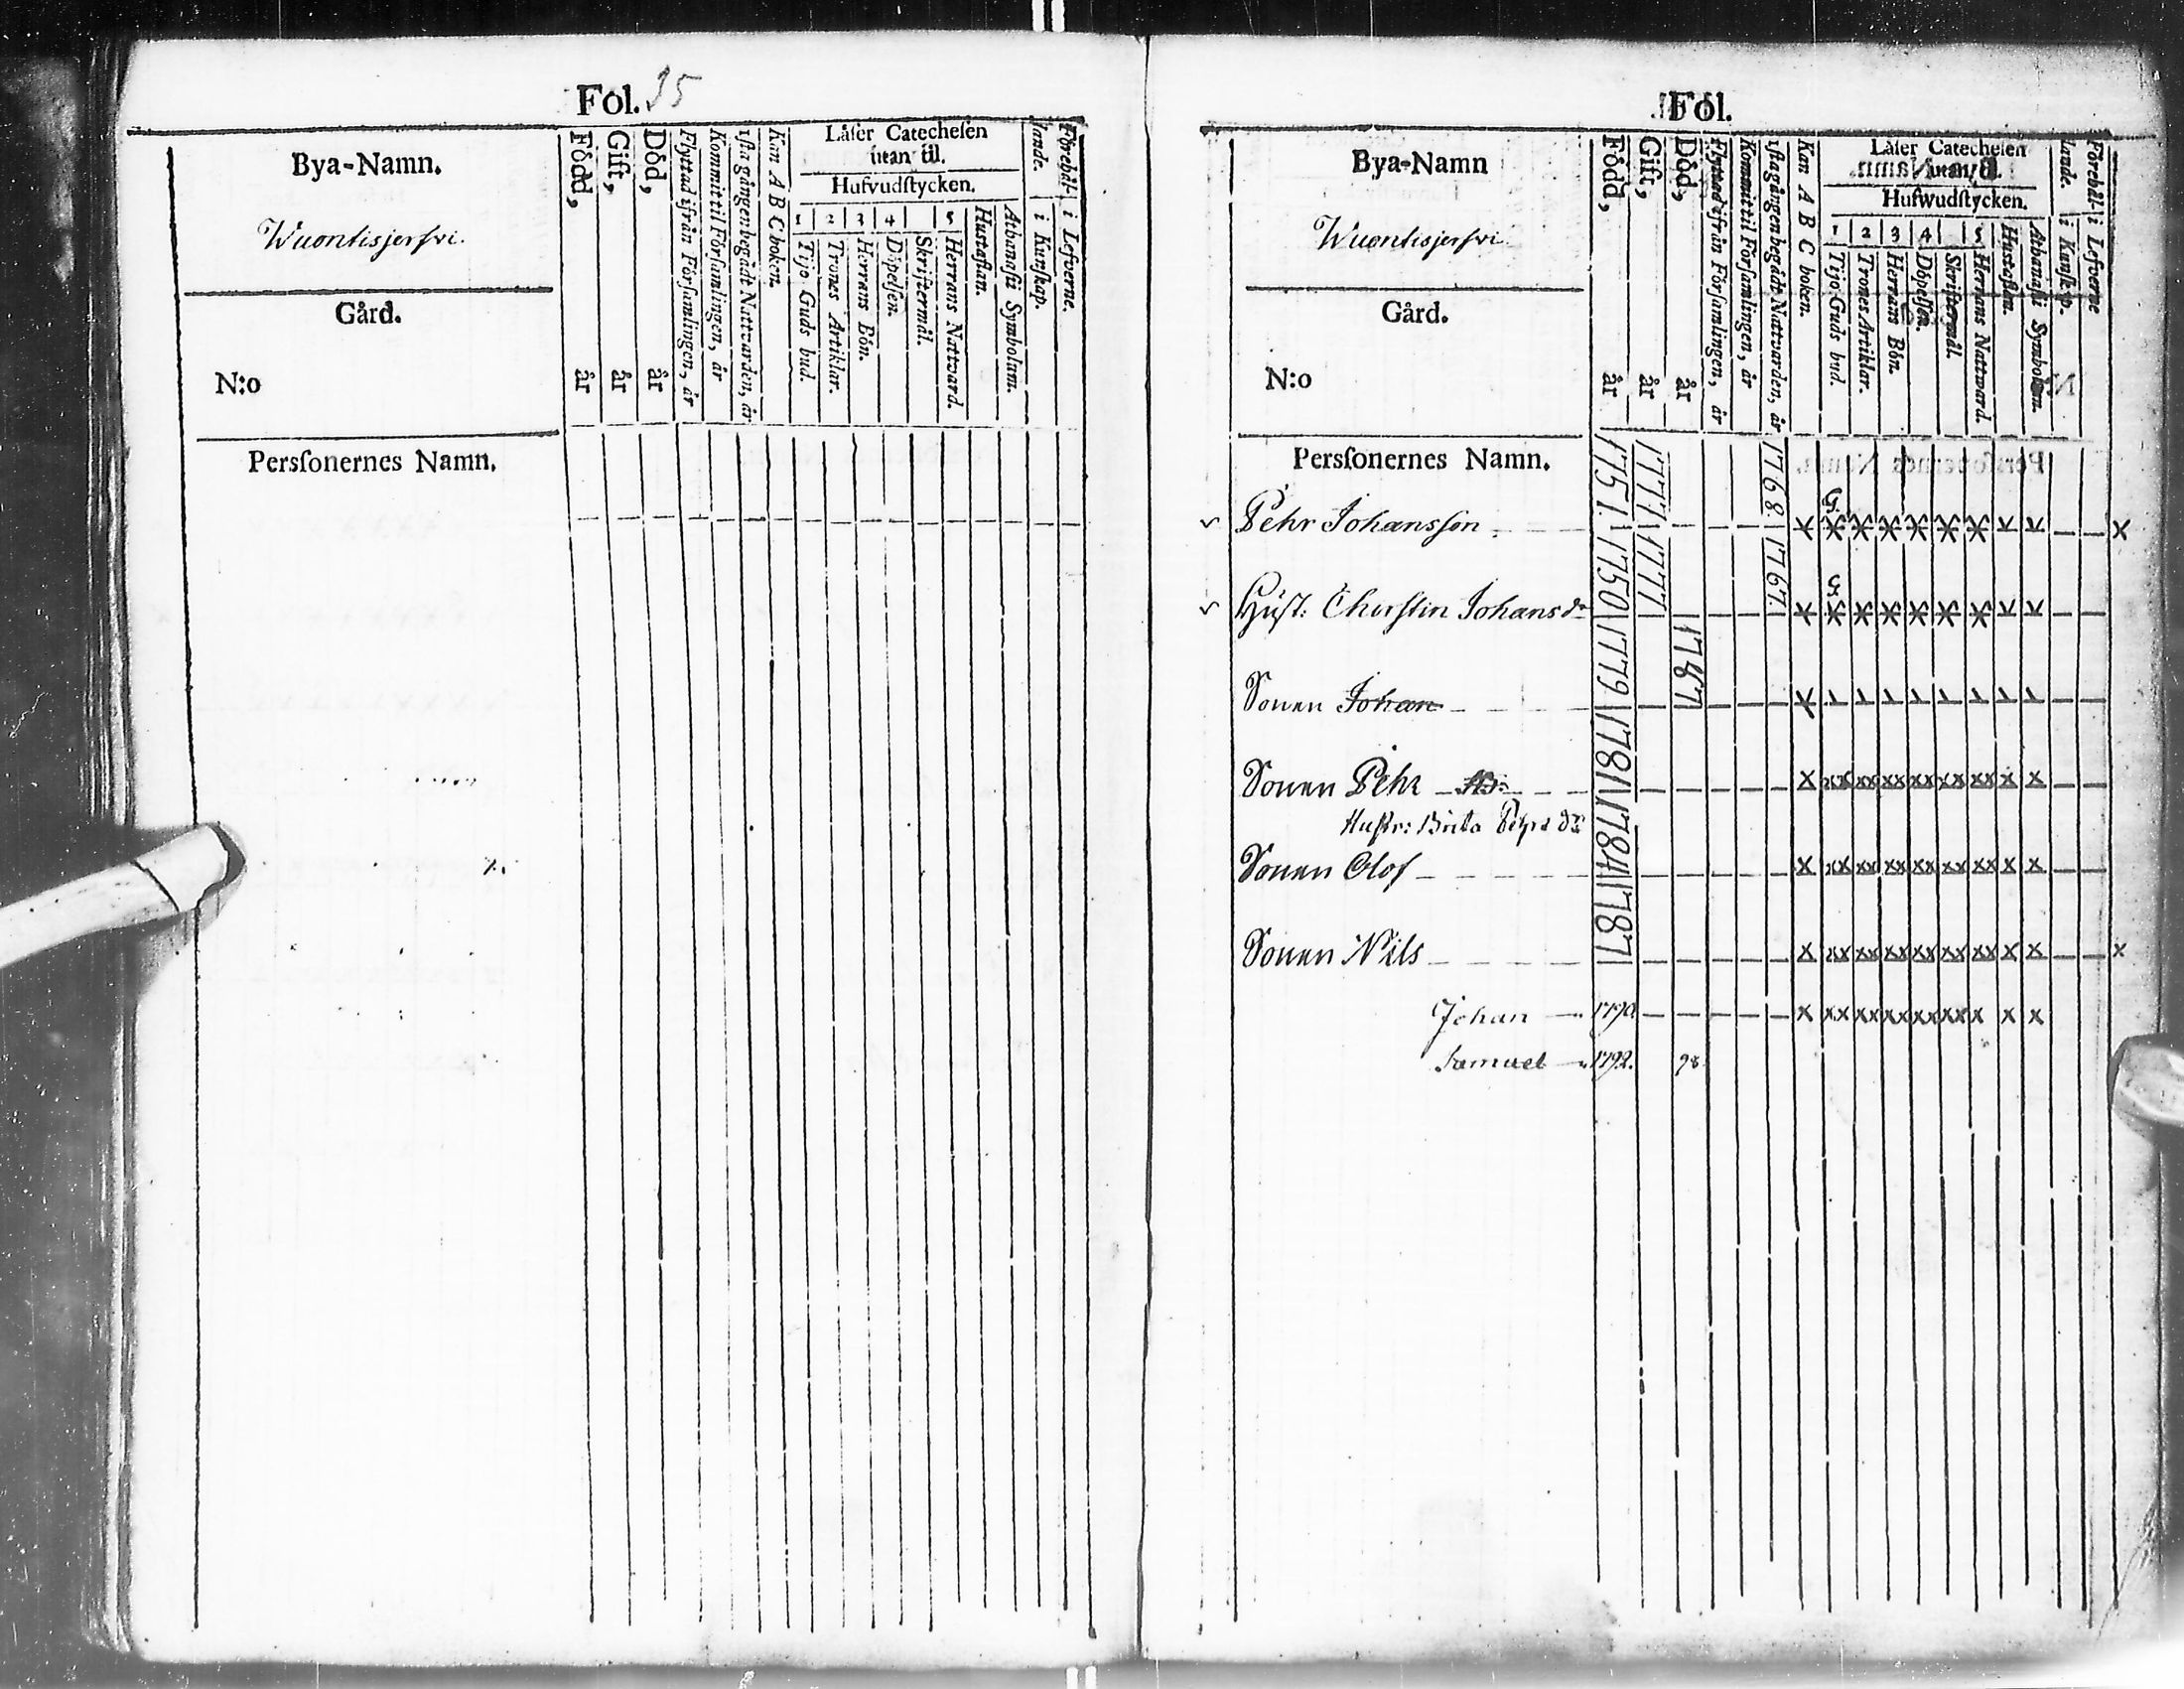 Fol. 35
Bya-Namn.
Wuontisjerfvi.
Gård.
N:o
Persſonernes Namn.
Född, år
Gift, år
Död, år
Flyttad ifrån Förſamlingen, år
Kommit til Förſamlingen, år
iſta gången begådt Nattvarden, år
Kan A B C boken.
Läſer Catecheſen
utan til.
Hufvudſtycken.
1 2 3 4 5
Tijo Guds bud.
Trones Artiklar.
Herrans Bön.
Döpelſen.
Skriftermål.
Herrans Nattvard.
Hustaflan.
Athanaſii Symbolum.
Förehål-
lande.
i Kunſkap.
i Lefverne.
Fol.
Bya-Namn
Wuontisjerfvi
Gård.
N:o
Persſonernes Namn.
Född, år
Gift, år
Död, år
Flyttad ifrån Förſamlingen, år
Kommit til Förſamlingen, år
iſta gången begådt Nattvarden, år
Kan A B C boken.
Läſer Catecheſen
utan til.
Hufwudſtycken.
1 2 3 4 5
Tijo Guds bud.
Trones Artiklar.
Herrans Bön.
Döpelſen.
Skriftermål.
Herrans Nattward.
Hustaflan.
Athanaſii Symbolum.
Förehål-
lande.
i Kunſkap.
i Lefverne
Pehr Johansſon 1751 1777 1768
Huſt: Cherſtin Johansdr 1750 1777 1767
Sonen Johan 1779 1787
Sonen Pehr 1781
Huſtr: Brita Pehrs dr
Sonen Olof 1784
Sonen Nils 1787
Johan 1790
Samuel 1792. 98